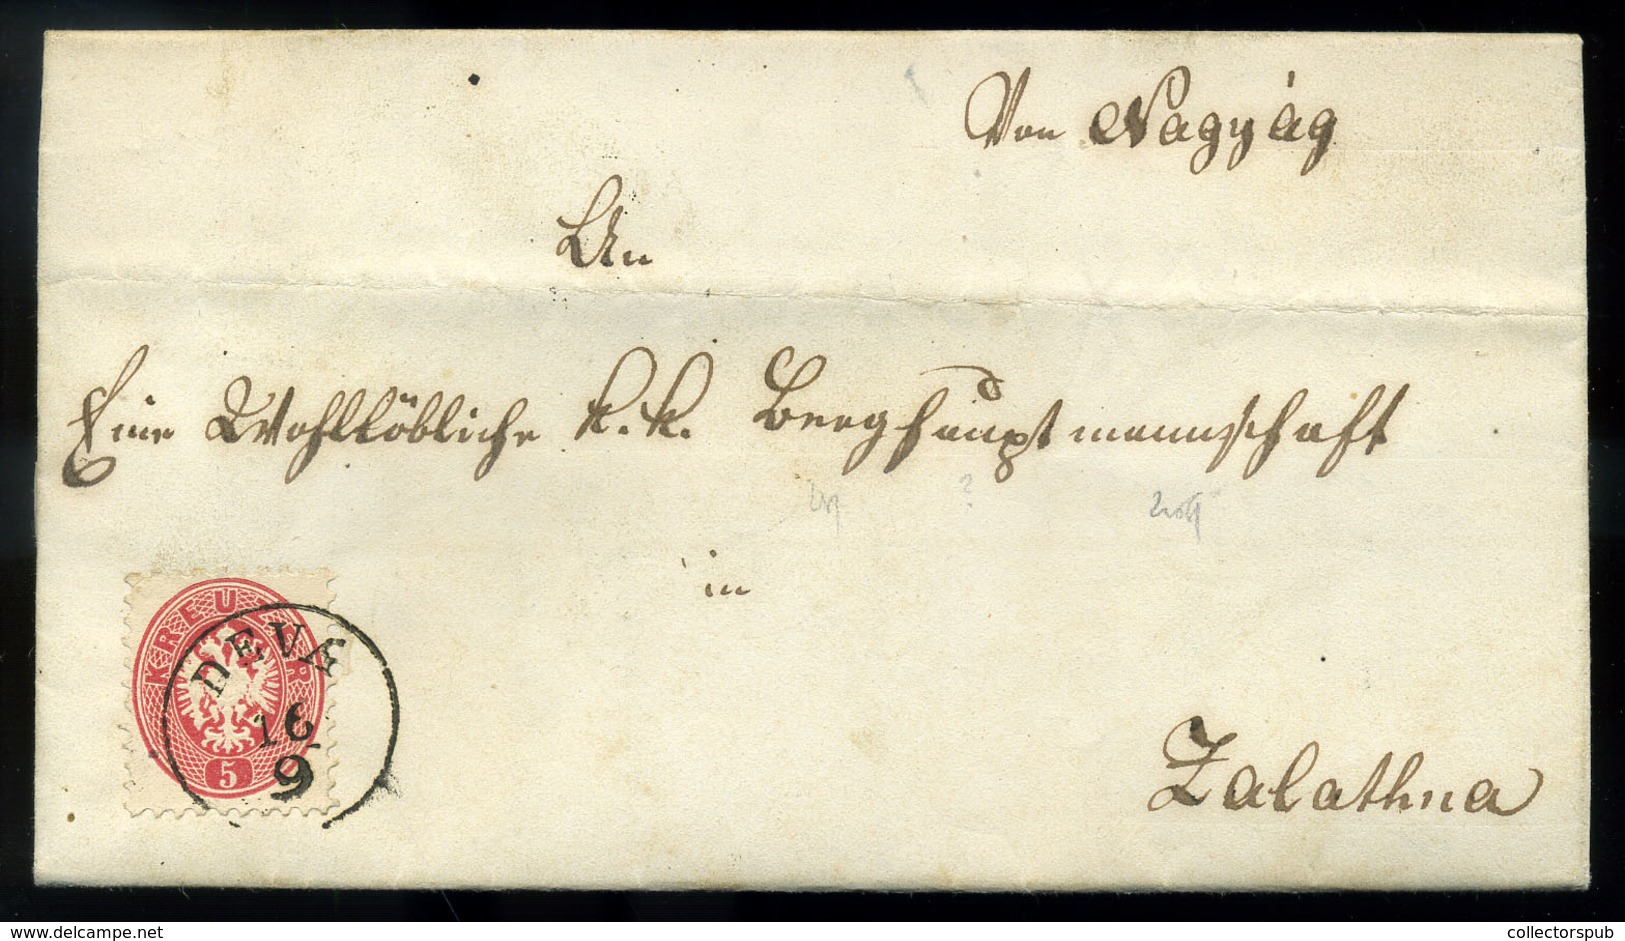 Von Nagyág
An
Eine Wohllöbliche k. k. Berghauptmannschaft
in
Zalathna
KREUZER
5
DEVA
16
9
www.delcampe.net
collectorspub